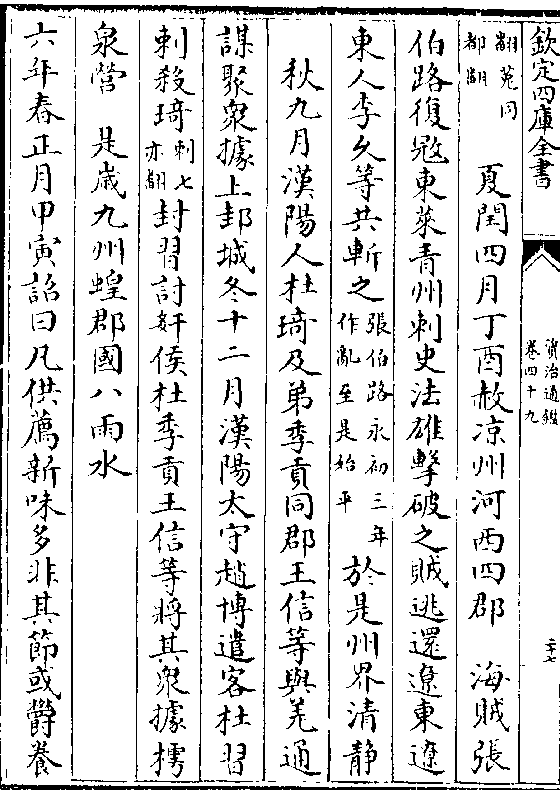 欽定四庫全書
資治通鑑
卷四十九
二十七
翻莞同
都翻
夏閏四月丁酉赦凉州河西四郡 海賊張
伯路復㓂東萊青州刺史法雄擊破之賊逃還遼東遼
東人李久等共斬之張伯路永初三年作亂至是始平於是州界清静
秋九月漢陽人杜琦及弟季貢同郡王信等與羌通
謀聚衆據上邽城冬十二月漢陽太守趙博遣客杜習
刺殺琦刺七亦翻封習討奸侯杜季貢王信等將其衆據樗
泉營 是歳九州蝗郡國八雨水
六年春正月甲寅詔曰凡供薦新味多非其節或鬱養